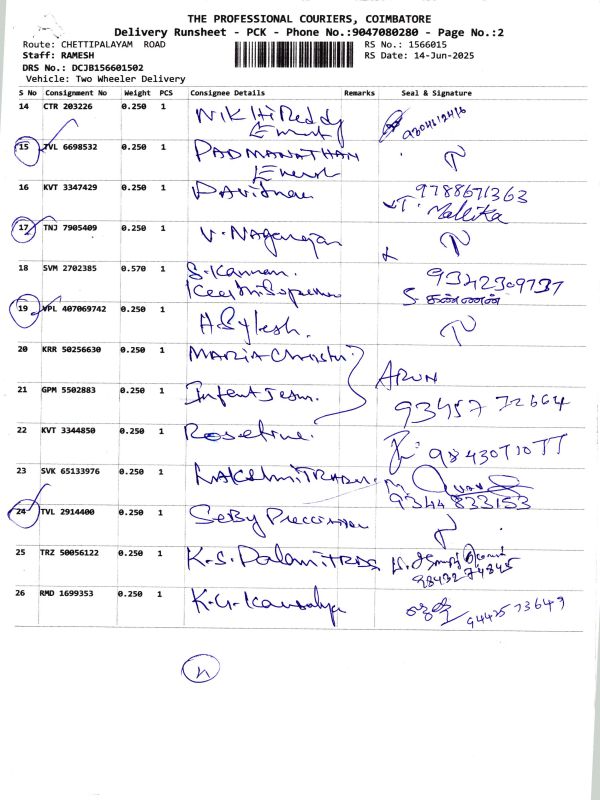 THE PROFESSIONAL COURIERS, COIMBATORE
Delivery Runsheet - PCK - Phone No.:9047080280 - Page No.:2
Route: CHETTIPALAYAM ROAD
RS No.: 1566015
Staff: RAMESH
RS Date: 14-Jun-2025
DRS No.: DCJB156601502
Vehicle: Two Wheeler Delivery
S No Consignment No Weight PCS Consignee Details Remarks Seal & Signature
14 CTR 203226 0.250 1 Nikhil Reddy
15 TVL 6698532 0.250 1 PADMANATHAN
16 KVT 3347429 0.250 1 9788671363
Mallika
17 TNJ 7905409 0.250 1 V. Nagarajan
18 SVM 2702385 0.570 1 S. Kannan. 9342309737
S. கண்ணன்
19 VPL 407069742 0.250 1
20 KRR 50256630 0.250 1 MARIA ARUN
21 GPM 5502883 0.250 1 Infent Jesu. 93457 72664
22 KVT 3344850 0.250 1 Roseline.
23 SVK 65133976 0.250 1 LAKSHMI TRADER
9344833153
24 TVL 2914400 0.250 1 SeBy Precision
25 TRZ 50056122 0.250 1 K.S. Palani TRDS
9843274845
26 RMD 1699353 0.250 1 K.G. Kausalya